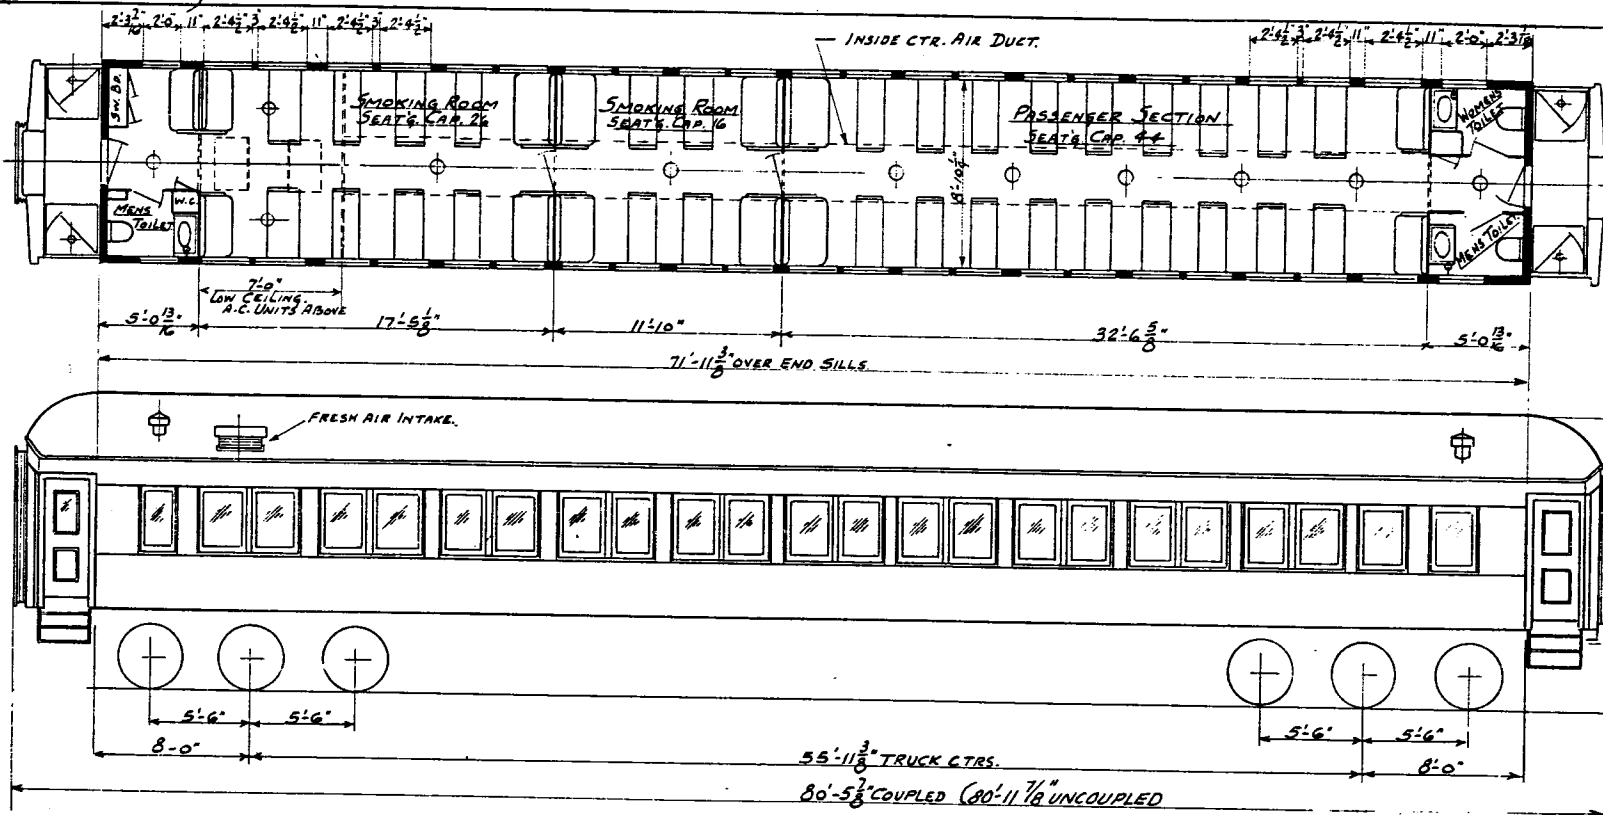 2'-3 7/16" 2'-0" 11" 2'-4 1/2" 3" 2'-4 1/2" 11" 2'-4 1/2" 3" 2'-4 1/2"
2'-4 1/2" 3" 2'-4 1/2" 11" 2'-4 1/2" 11" 2'-0" 2'-3 7/16"
INSIDE CTR. AIR DUCT.
SW. BP.
SMOKING ROOM
SEAT'G. CAP. 26
SMOKING ROOM
SEAT'G. CAP. 16
PASSENGER SECTION
SEAT'G CAP. 44
WOMENS
TOILET
8'-10 1/4"
MENS
TOILET
W.C.
MENS TOILET
7'-0"
LOW CEILING
A.C. UNITS ABOVE
5'-0 13/16" 17'-5 1/8" 11'-10" 32'-6 5/8" 5'-0 13/16"
71'-11 3/8" OVER END SILLS.
FRESH AIR INTAKE.
5'-6" 5'-6" 5'-6" 5'-6"
8'-0" 55'-11 3/8" TRUCK CTRS. 8'-0"
80'-5 7/8" COUPLED (80'-11 7/8" UNCOUPLED